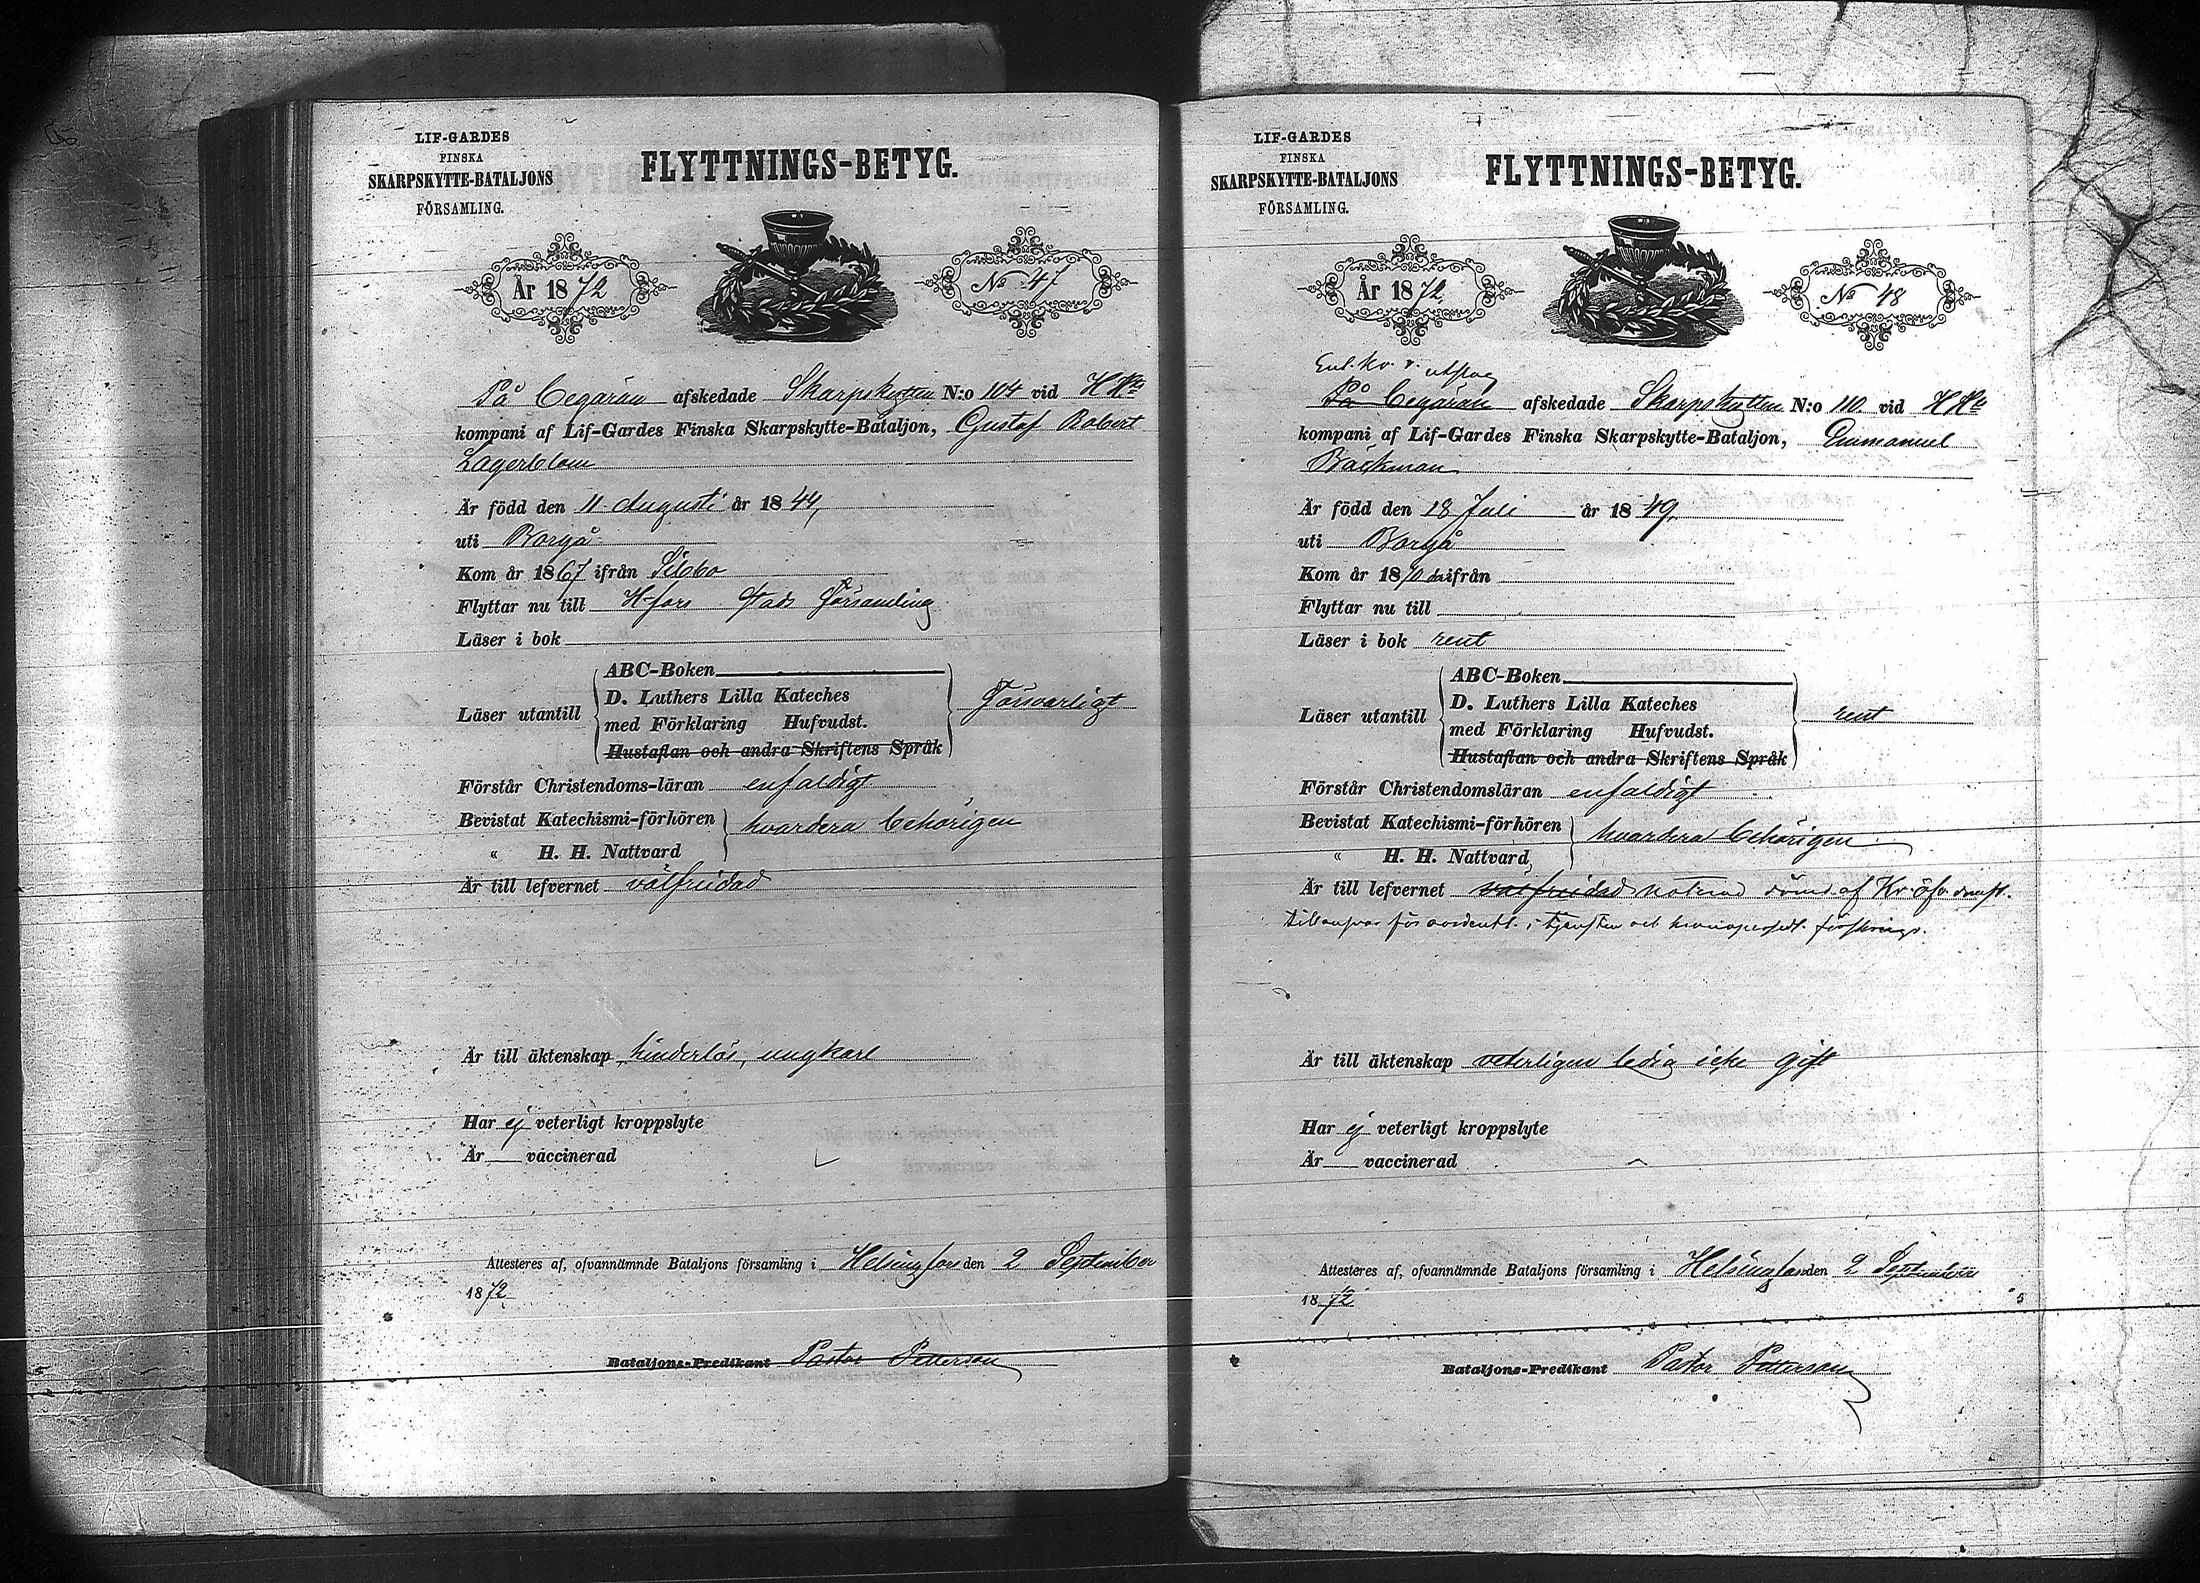 LIF-GARDES
FINSKA
SKARPSKYTTE-BATALJONS
FÖRSAMLING.
FLYTTNINGS-BETYG.
År 1872
No 47
På begäran afskedade Skarpskytten N:o 104 vid
kompani af Lif-Gardes Finska Skarpskytte-Bataljon, Gustaf Robert
Lagerblom
Är född den 11 Augusti år 1844,
uti Borgå
Kom år 1867 ifrån Sibbo
Flyttar nu till H-fors Församling
Läser i bok
Läser utantill
ABC-Boken
D. Luthers Lilla Kateches
med Förklaring Hufvudst.
Hustaflan och andra Skriftens Språk
Försvarligt
Förstår Christendoms-läran enfaldigt
Bevistat Katechismi-förhören
« H. H. Nattvard
hvardera behörigen
Är till lefvernet välfrejdad
Är till äktenskap hinderlös, ungkarl
Har ej veterligt kroppslyte
Är vaccinerad
Attesteres af, ofvannämnde Bataljons församling i Helsingfors den 2 September
1872
Bataljons-Predikant Pastor Petterson
LIF-GARDES
FINSKA
SKARPSKYTTE-BATALJONS
FÖRSAMLING.
FLYTTNINGS-BETYG.
År 1872
No 48
På begäran afskedade Skarpskytten N:o 110 vid
kompani af Lif-Gardes Finska Skarpskytte-Bataljon, Emmanuel
Bäckman
Är född den 18 Juli år 1849,
uti Borgå
Kom år 1870 ifrån
Flyttar nu till
Läser i bok rent
Läser utantill
ABC-Boken
D. Luthers Lilla Kateches
med Förklaring Hufvudst.
Hustaflan och andra Skriftens Språk
rent
Förstår Christendomsläran enfaldigt
Bevistat Katechismi-förhören
« H. H. Nattvard
hvardera behörigen
Är till lefvernet välfrejdad af
för i tjensten
Är till äktenskap veterligen ledig icke gift
Har ej veterligt kroppslyte
Är vaccinerad
Attesteres af, ofvannämnde Bataljons församling i Helsingfors den 2 September
1872
Bataljons-Predikant Pastor Petterson